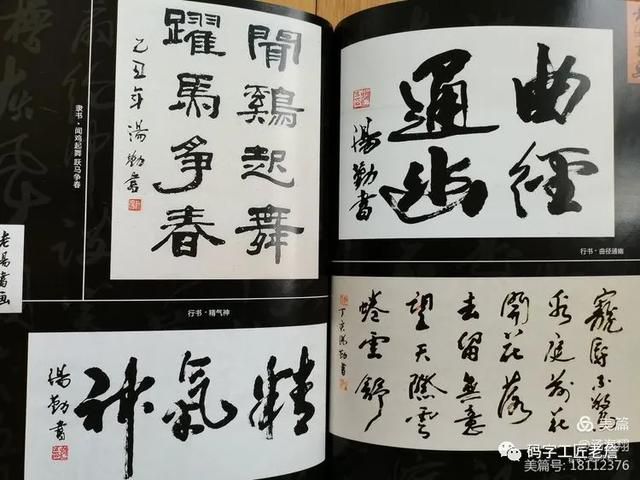 聞鷄起舞
躍馬爭春
乙丑年 湯勤書
隶书·闻鸡起舞 跃马争春
老湯書画
行书·精气神
精氣神
湯勤書
曲徑
通幽
湯勤書
行书·曲径通幽
寵辱不驚
看庭前花
開花落
去留無意
望天際雲
捲雲舒
丁亥湯勤書
美篇
码字工匠老詹
美篇号: 18112376